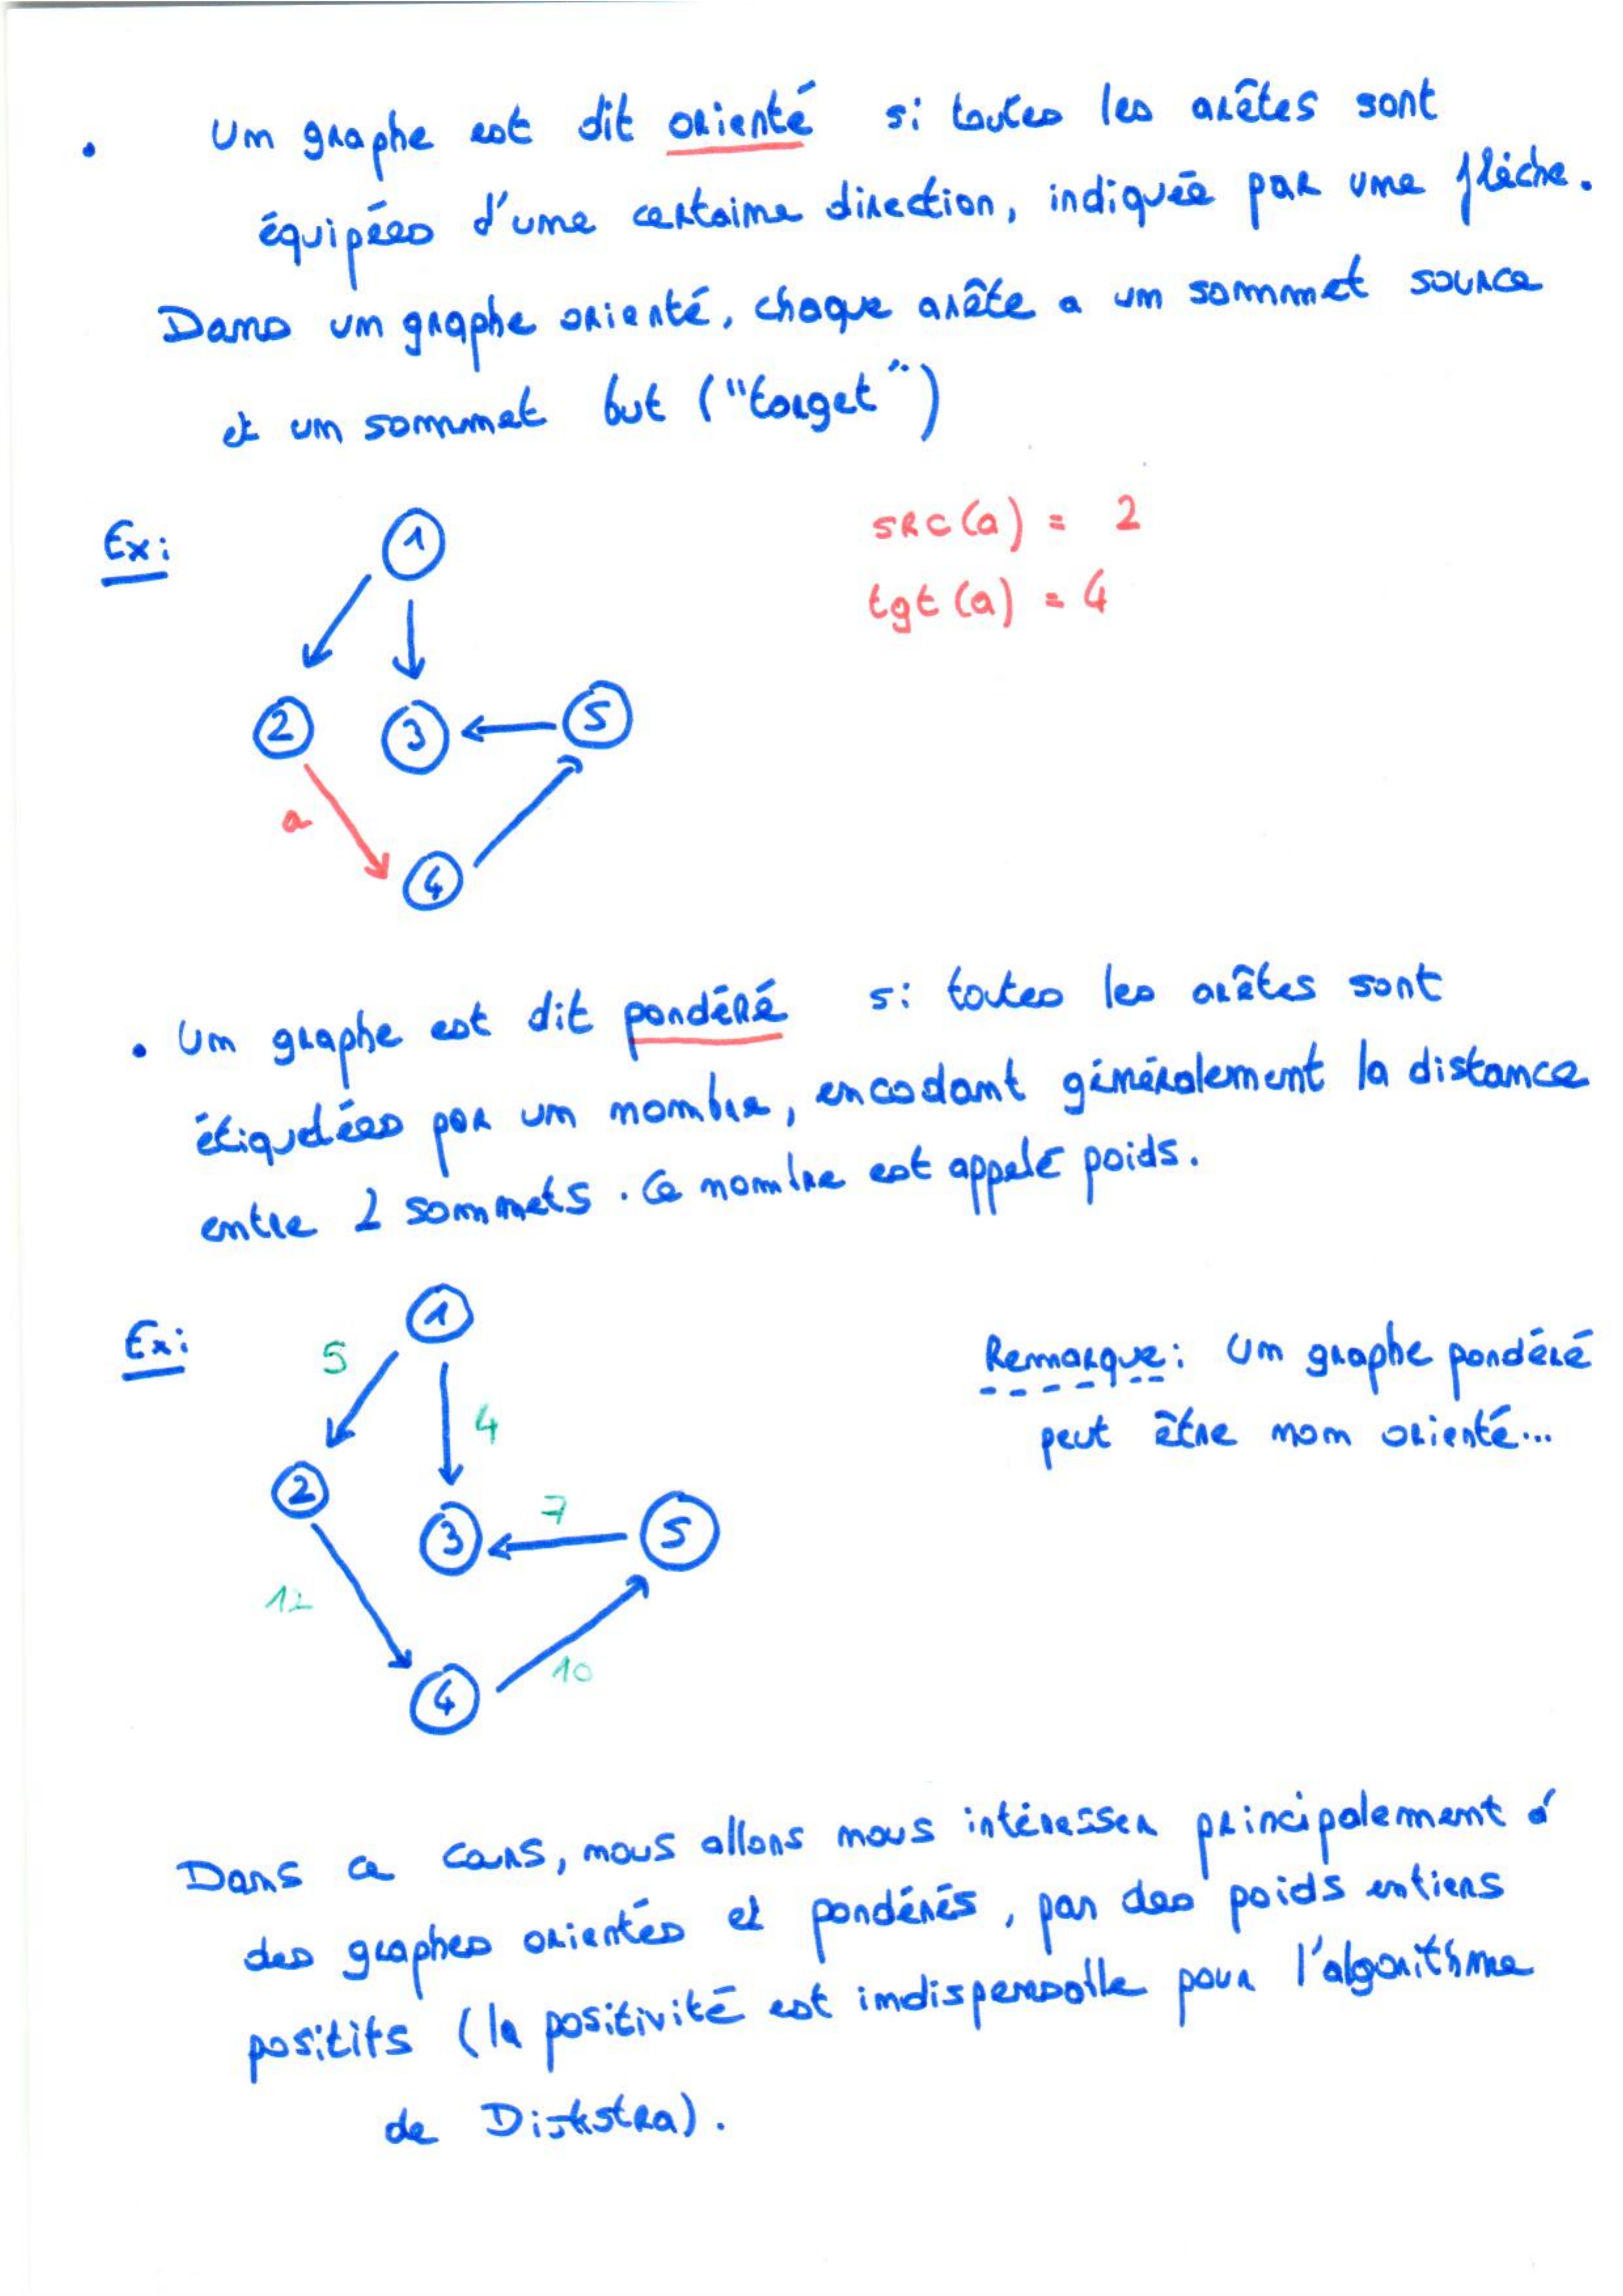 • Un graphe est dit orienté si toutes les arêtes sont
équipées d'une certaine direction, indiquée par une flèche.
Dans un graphe orienté, chaque arête a un sommet source
et un sommet but ("target")
Ex:
src(a) = 2
tgt(a) = 4
1
2
3
5
a
4
• Un graphe est dit pondéré si toutes les arêtes sont
étiquetées par un nombre, encodant généralement la distance
entre 2 sommets. Ce nombre est appelé poids.
Ex:
1
5
4
Remarque: Un graphe pondéré
peut être non orienté...
2
3
7
5
12
10
4
Dans ce cours, nous allons nous intéresser principalement à
des graphes orientés et pondérés, par des poids entiers
positifs (la positivité est indispensable pour l'algorithme
de Dijkstra).